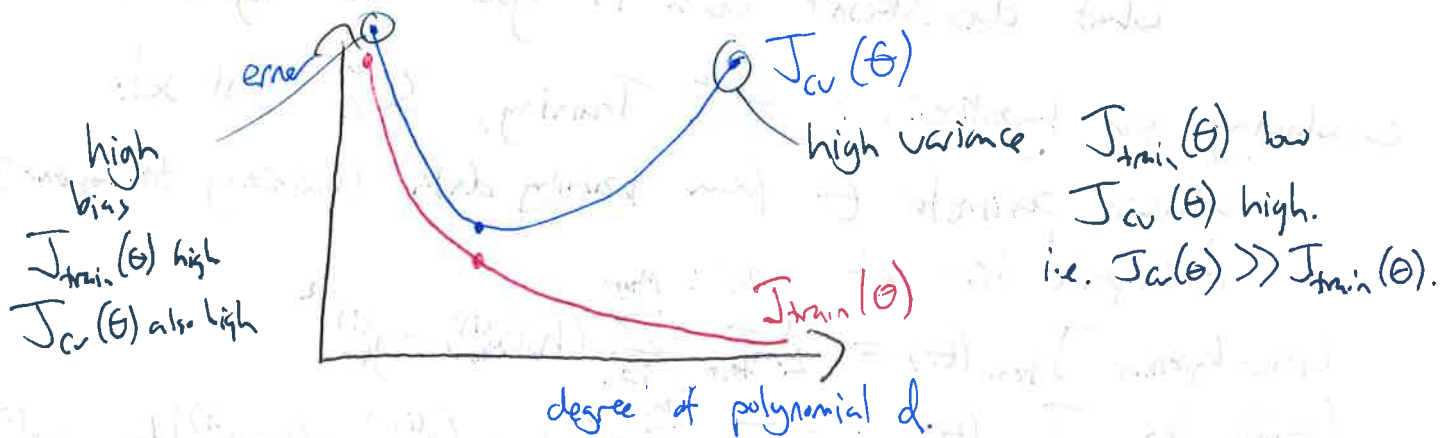 error
high
bias
J_train(θ) high
J_cv(θ) also high
J_cv(θ)
high variance. J_train(θ) low
J_cv(θ) high.
i.e. J_cv(θ) >> J_train(θ).
J_train(θ)
degree of polynomial d.